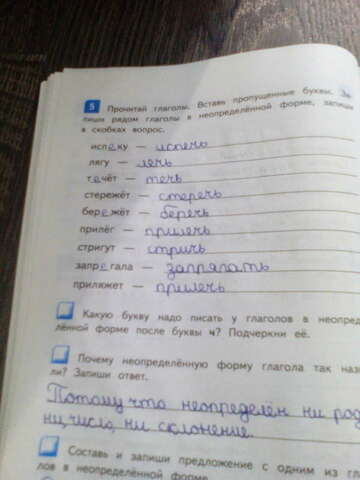 5 Прочитай глаголы. Вставь пропущенные буквы. За
пиши рядом глаголы в неопределённой форме, запиши
в скобках вопрос.
испеку — испечь
лягу — лечь
течёт — течь
стережёт — стеречь
бережёт — беречь
прилёг — прилечь
стригут — стричь
запрегала — запрягать
приляжет — прилечь
Какую букву надо писать у глаголов в неопред
лённой форме после буквы ч? Подчеркни её.
Почему неопределённую форму глагола так назв
ли? Запиши ответ.
Потому что неопределён ни род
ни, число, ни склонение.
Составь и запиши предложение с одним из гла
лов в неопределённой форме.